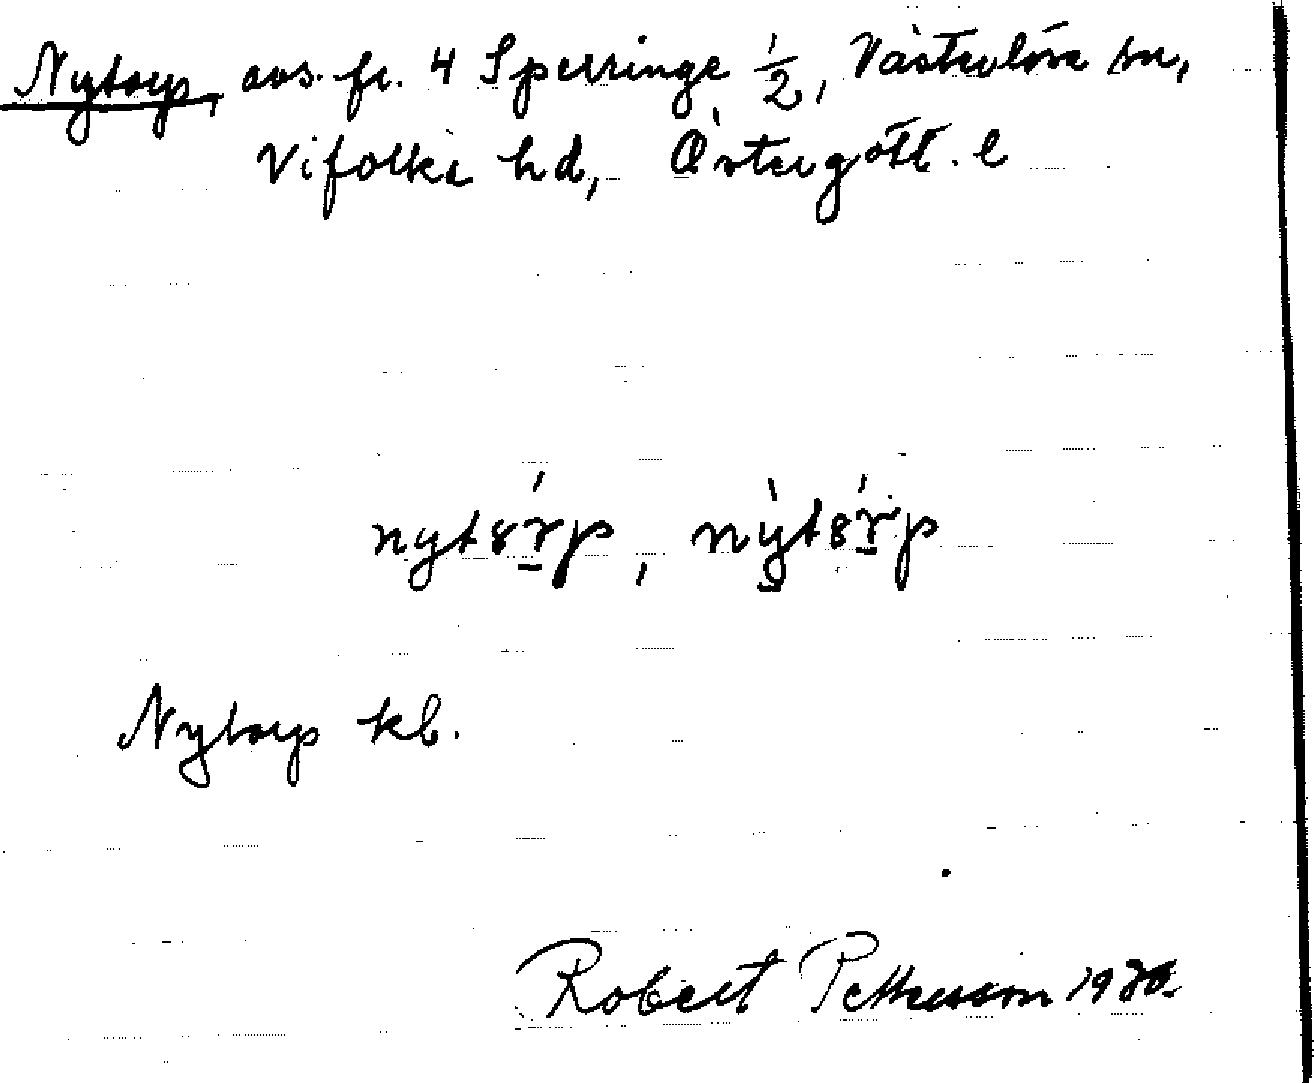 Nytorp, avs. fr. 4 Sperringe 1/2, Västerlösa sn,
Vifolka hd, Östergötl. l
nytȣ́r̠p, nỳ̠tȣŕ̠p
Nytorp kb.
Robert Pettersson